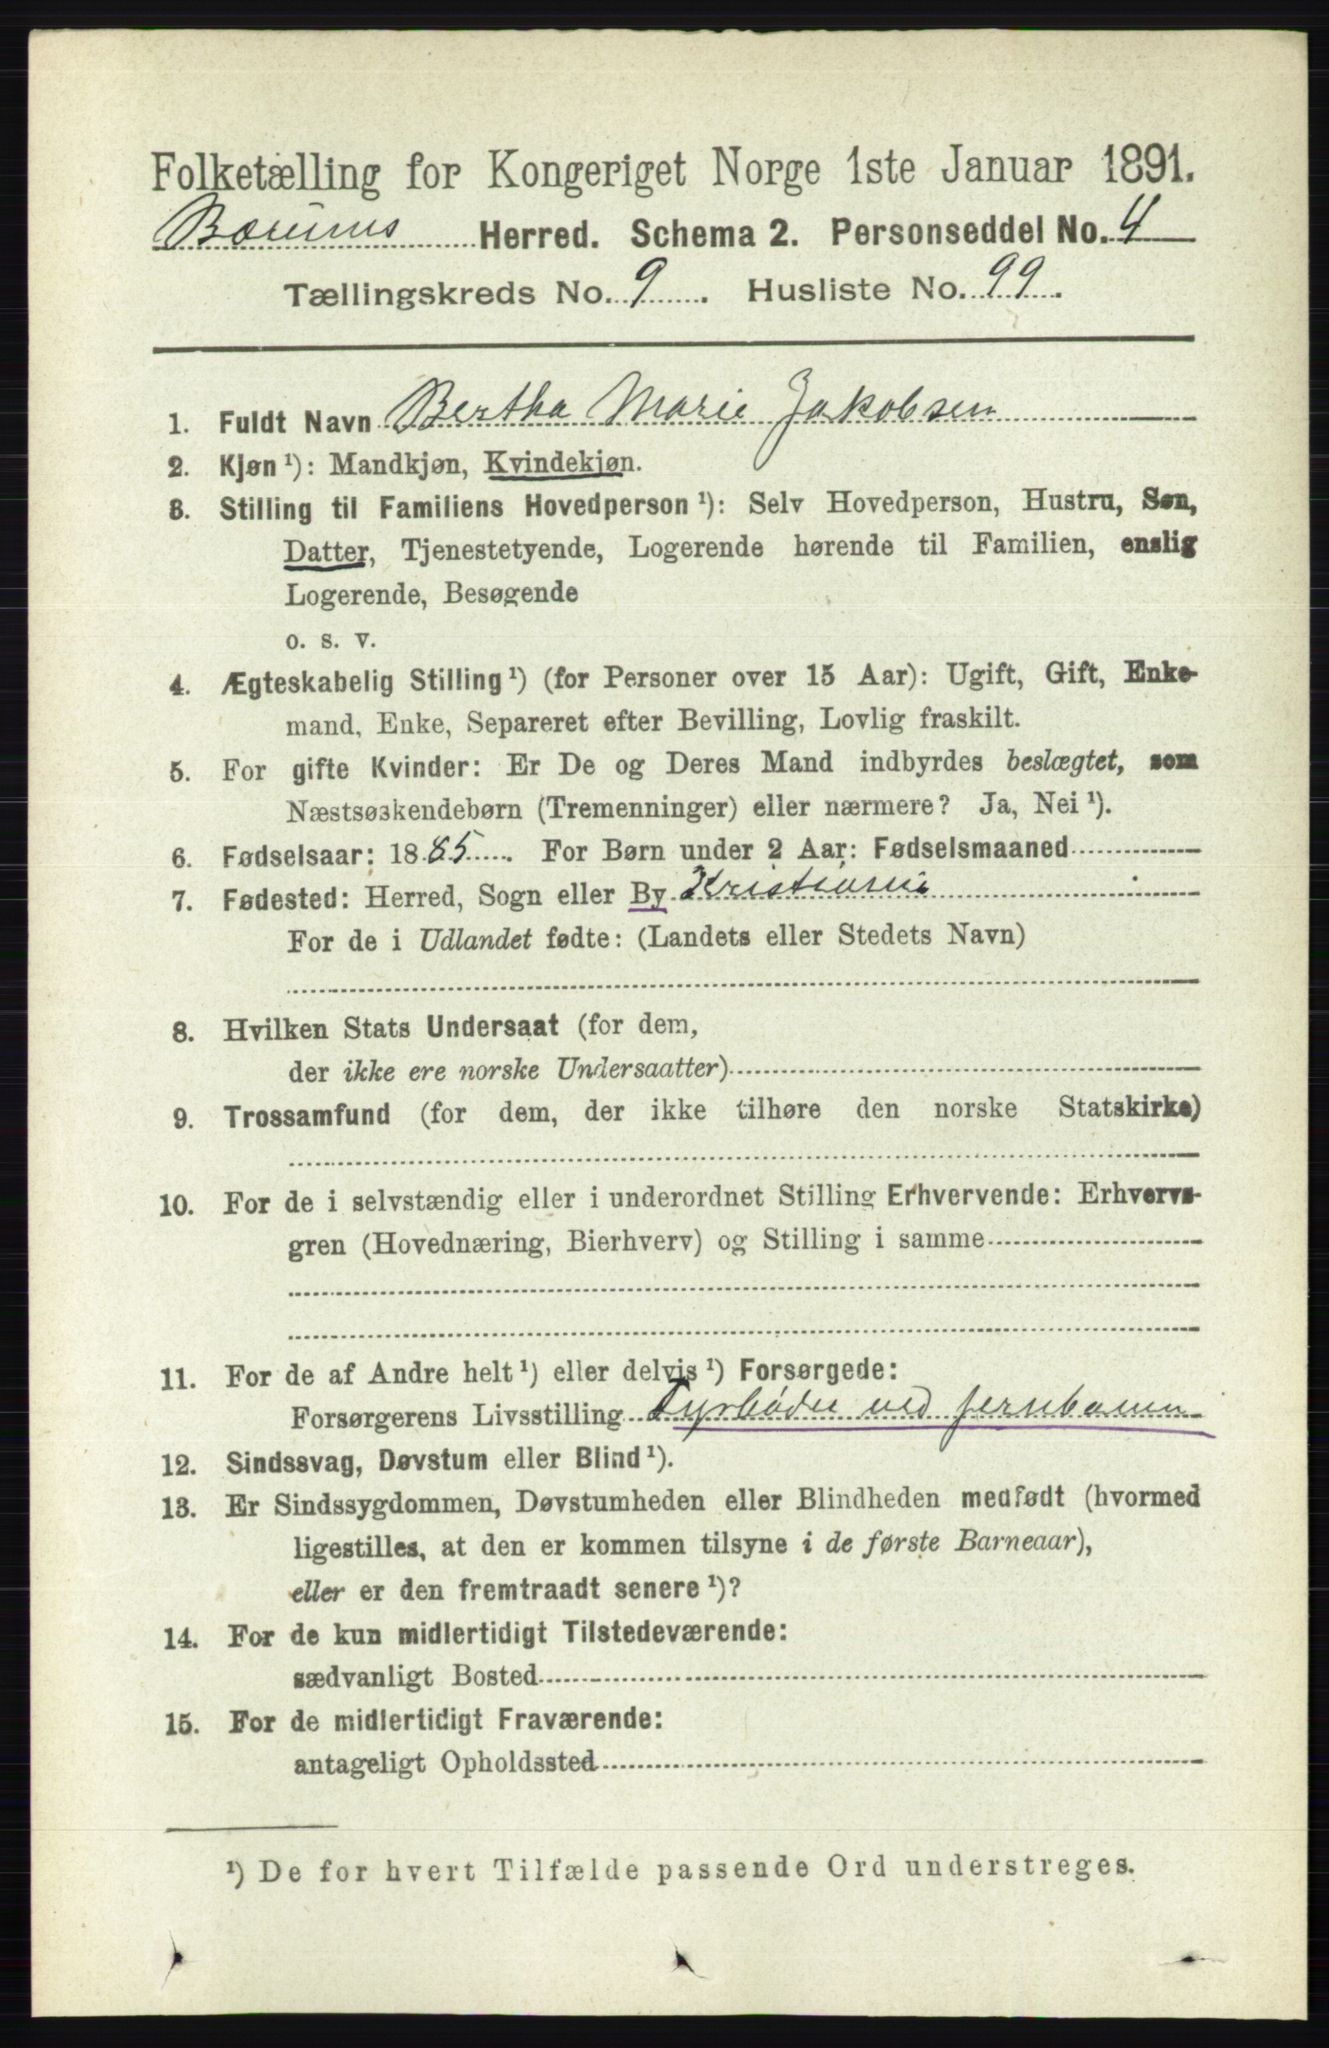 Folketælling for Kongeriget Norge 1ste Januar 1891.
Bærums Herred. Schema 2. Personseddel No. 4
Tællingskreds No. 9. Husliste No. 99.
1. Fuldt Navn Bertha Marie Jakobsen
2. Kjøn¹): Mandkjøn, Kvindekjøn.
3. Stilling til Familiens Hovedperson¹): Selv Hovedperson, Hustru, Søn,
Datter, Tjenestetyende, Logerende hørende til Familien, enslig
Logerende, Besøgende
o. s. v.
4. Ægteskabelig Stilling¹) (for Personer over 15 Aar): Ugift, Gift, Enke-
mand, Enke, Separeret efter Bevilling, Lovlig fraskilt.
5. For gifte Kvinder: Er De og Deres Mand indbyrdes beslægtet, som
Næstsøskendebørn (Tremenninger) eller nærmere? Ja, Nei¹).
6. Fødselsaar: 1885. For Børn under 2 Aar: Fødselsmaaned
7. Fødested: Herred, Sogn eller By Kristiania
For de i Udlandet fødte: (Landets eller Stedets Navn)
8. Hvilken Stats Undersaat (for dem,
der ikke ere norske Undersaatter)
9. Trossamfund (for dem, der ikke tilhøre den norske Statskirke)
10. For de i selvstændig eller i underordnet Stilling Erhvervende: Erhvervs-
gren (Hovednæring, Bierhverv) og Stilling i samme
11. For de af Andre helt¹) eller delvis¹) Forsørgede:
Forsørgerens Livsstilling Fyrbøder ved jernbanen
12. Sindssvag, Døvstum eller Blind¹).
13. Er Sindssygdommen, Døvstumheden eller Blindheden medfødt (hvormed
ligestilles, at den er kommen tilsyne i de første Barneaar),
eller er den fremtraadt senere¹)?
14. For de kun midlertidigt Tilstedeværende:
sædvanligt Bosted
15. For de midlertidigt Fraværende:
antageligt Opholdssted
¹) De for hvert Tilfælde passende Ord understreges.